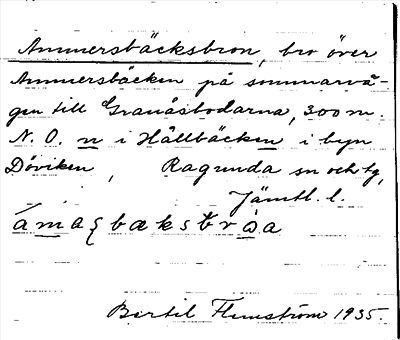 Ammersbäcksbron, bro över
Ammersbäcken på sommarvä-
gen till Granåsbodarna, 300 m.
N.O. n i Hållbäcken i byn
Döviken, Ragunda sn och tg,
Jämtl. l.
Bertil Flemström 1935.